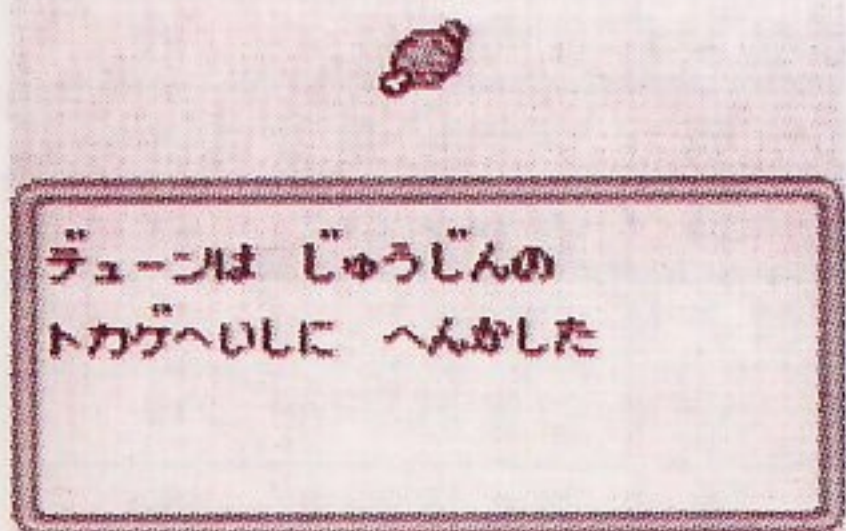 デューンは じゅうじんの
トカゲへいしに へんかした